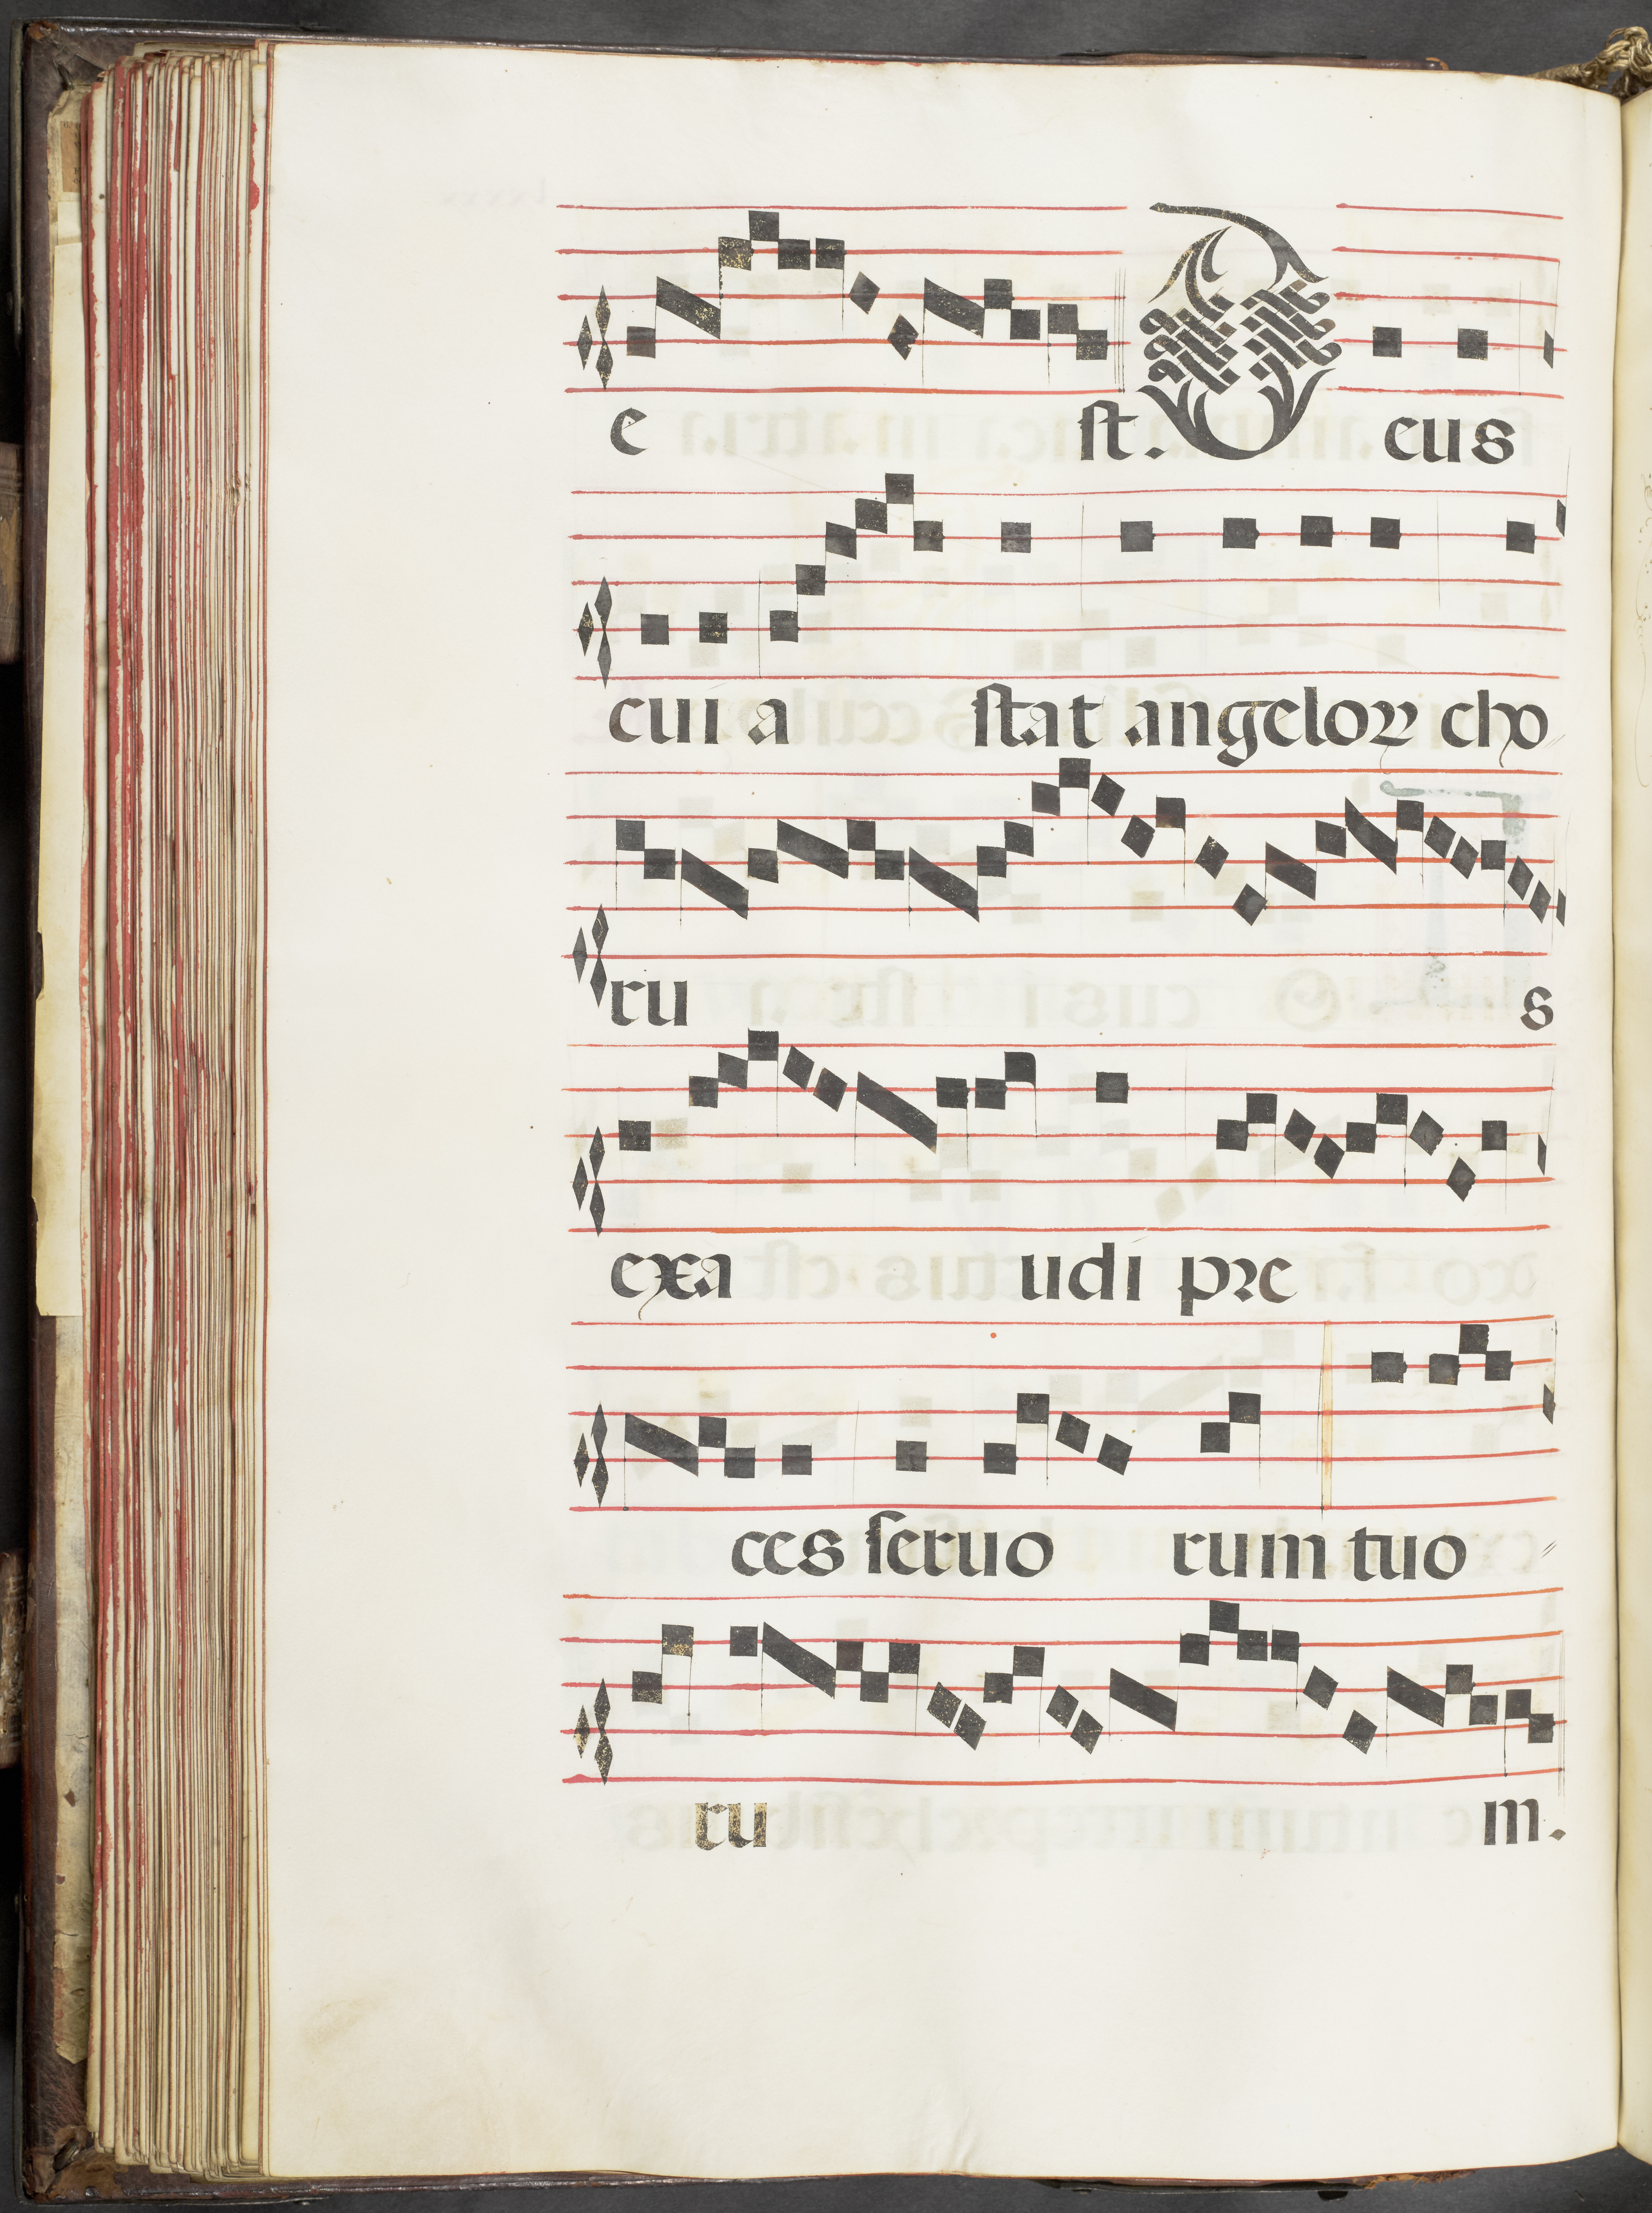 e st. Deus
cui a stat angeloꝝ cho
ru s
exa udi pꝛe
ces seruo rum tuo
ru m.